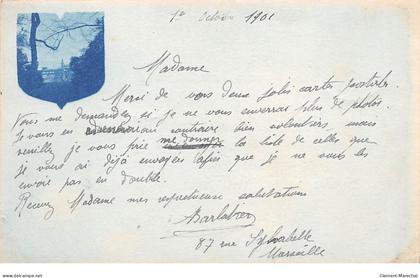 1er Octobre 1901
Madame
Merci de vos deux jolies cartes postales.
Vous me demandez si je ne vous enverrai plus de photos.
Je vous en au contraire bien volontiers, mais
veuillez je vous prie me donner la liste de celles que
je vous ai déjà envoyées afin que je ne vous les
envoie pas en double.
Recevez Madame mes respectueuse salutations
87 rue Sylvabelle
Marseille
delcampe.net
Clement-Marechal